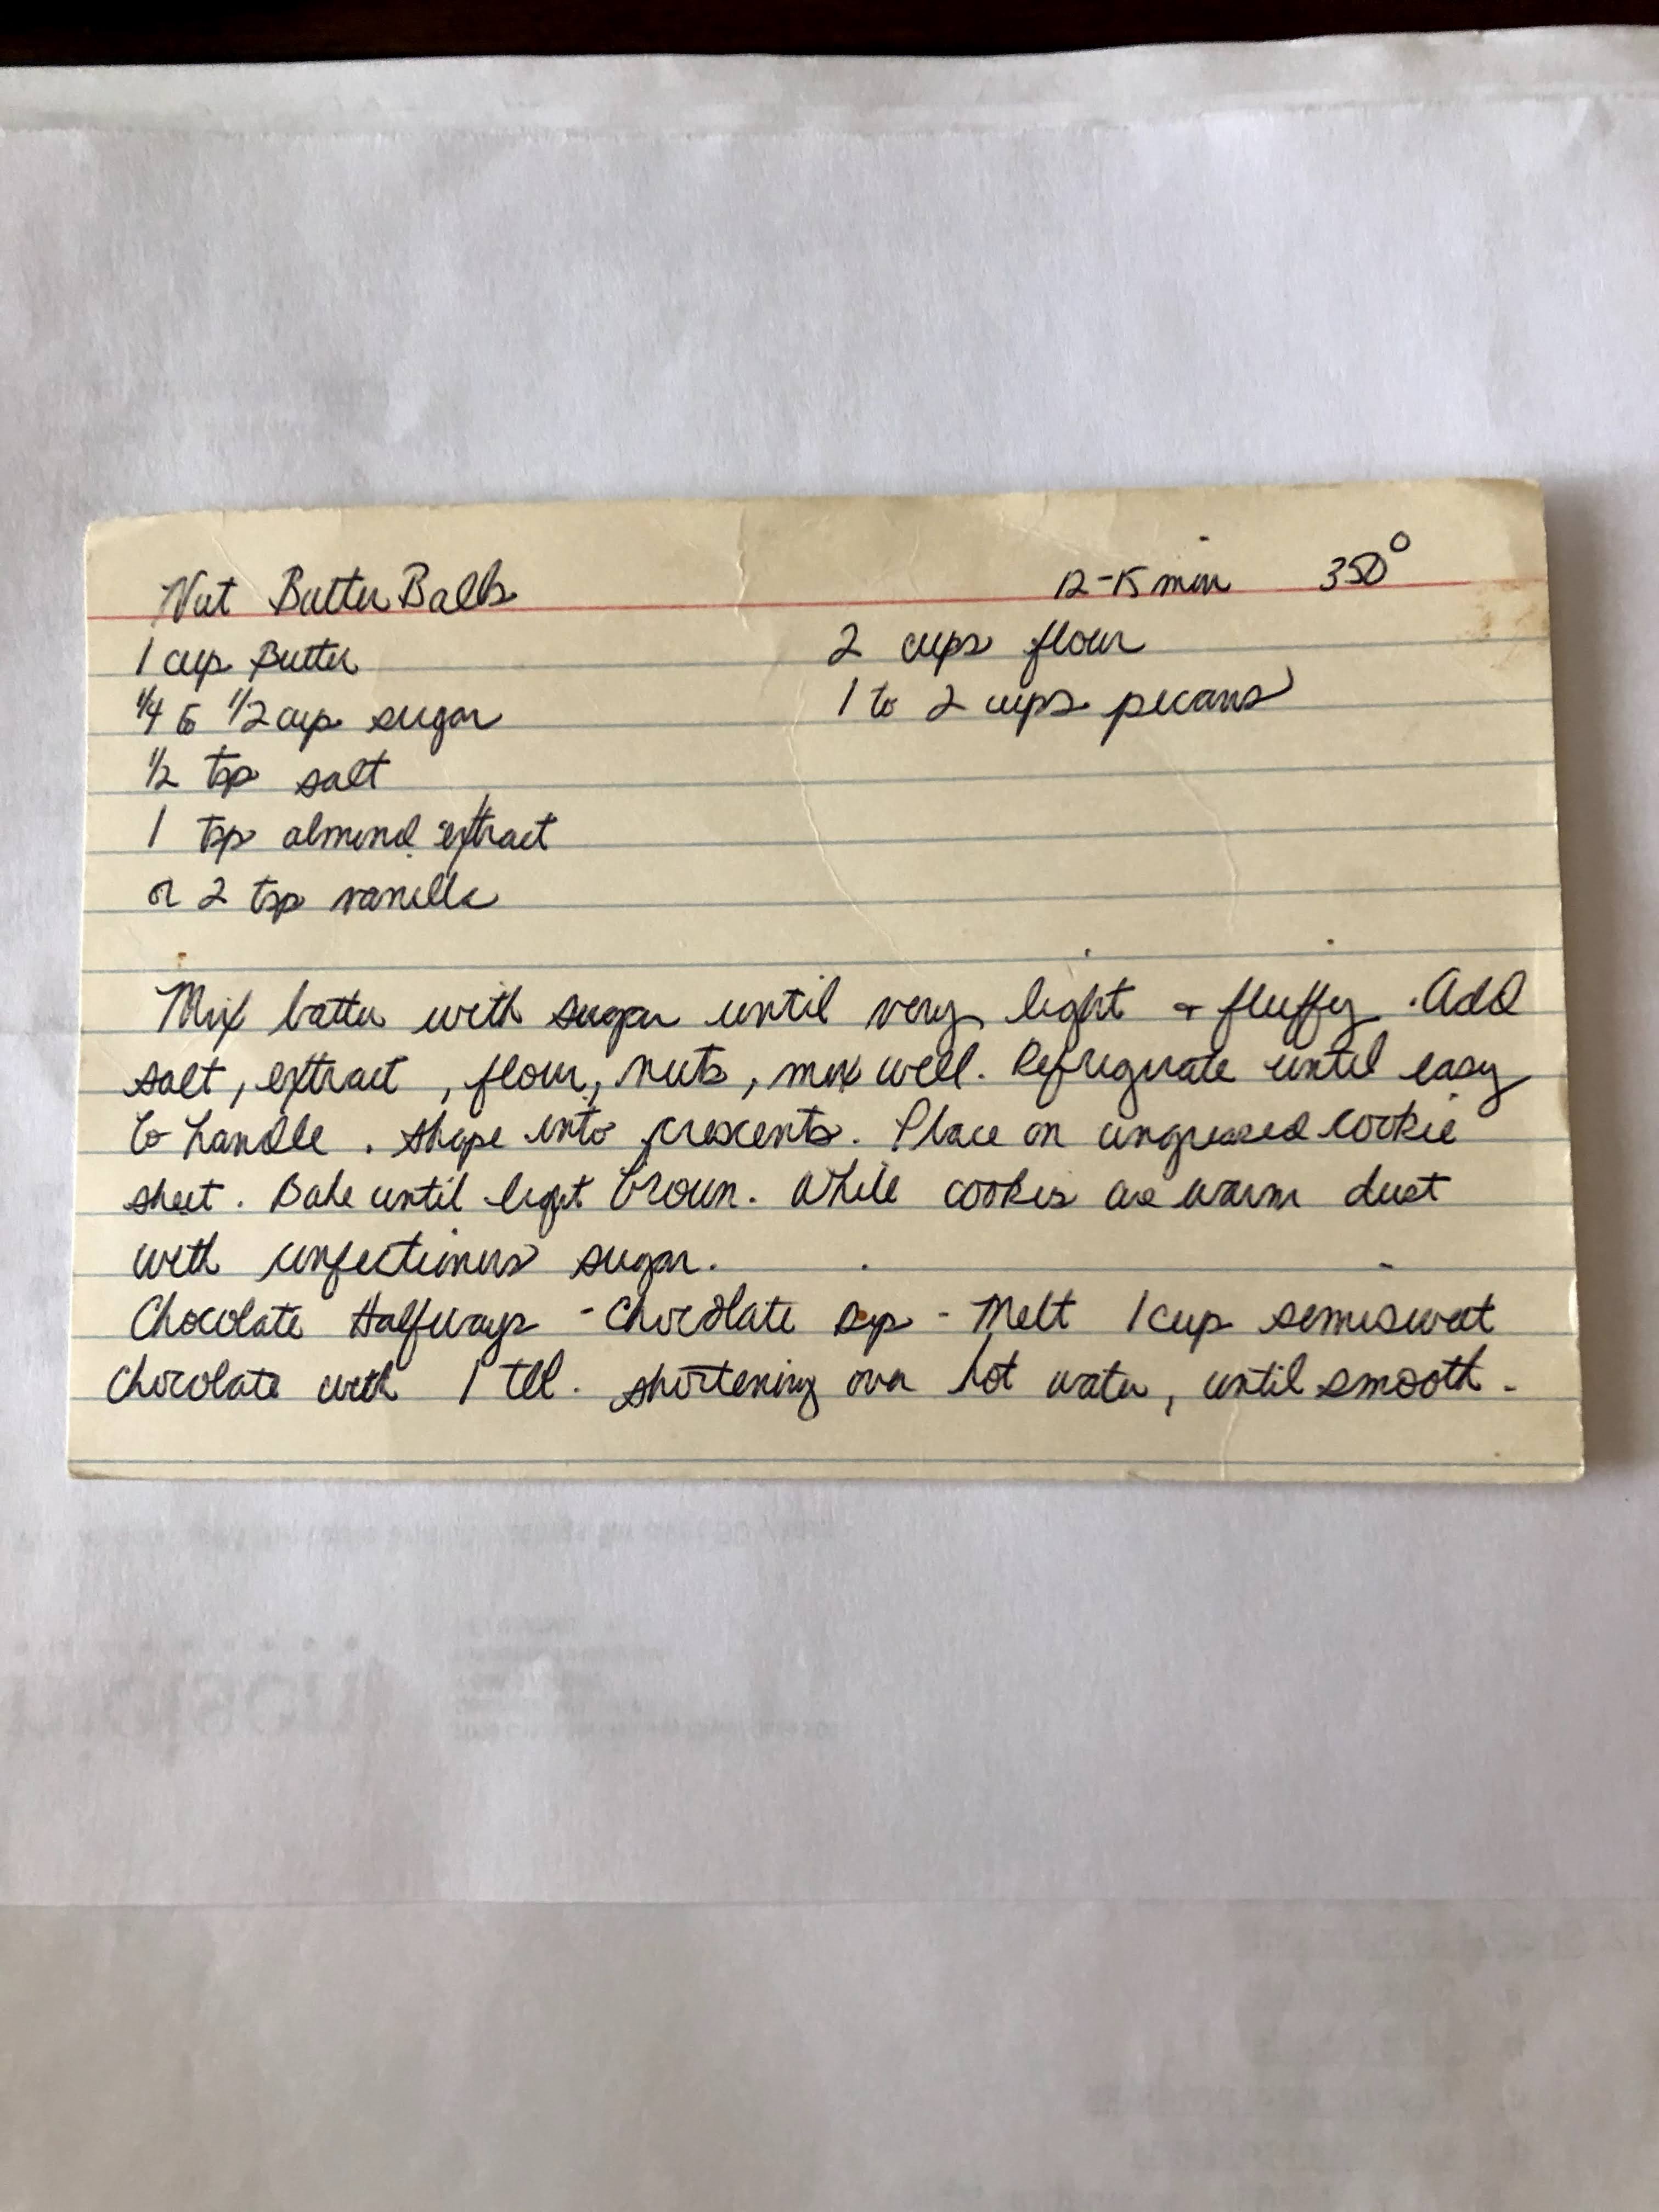 Nut Butter Balls 12-15 min 350°
1 cup Butter 2 cups flour
1/4 to 1/2 cup sugar 1 to 2 cups pecans
1/2 tsp salt
1 tsp almond extract
or 2 tsp vanilla
Mix batter with sugar until very light & fluffy. Add
salt, extract, flour, nuts, mix well. Refrigerate until easy
to handle. Shape into crescents. Place on ungreased cookie
sheet. Bake until light brown. While cookies are warm dust
with confectioners sugar.
Chocolate Halfways - Chocolate Dip - Melt 1 cup semisweet
chocolate with 1 tbl. shortening over hot water, until smooth.